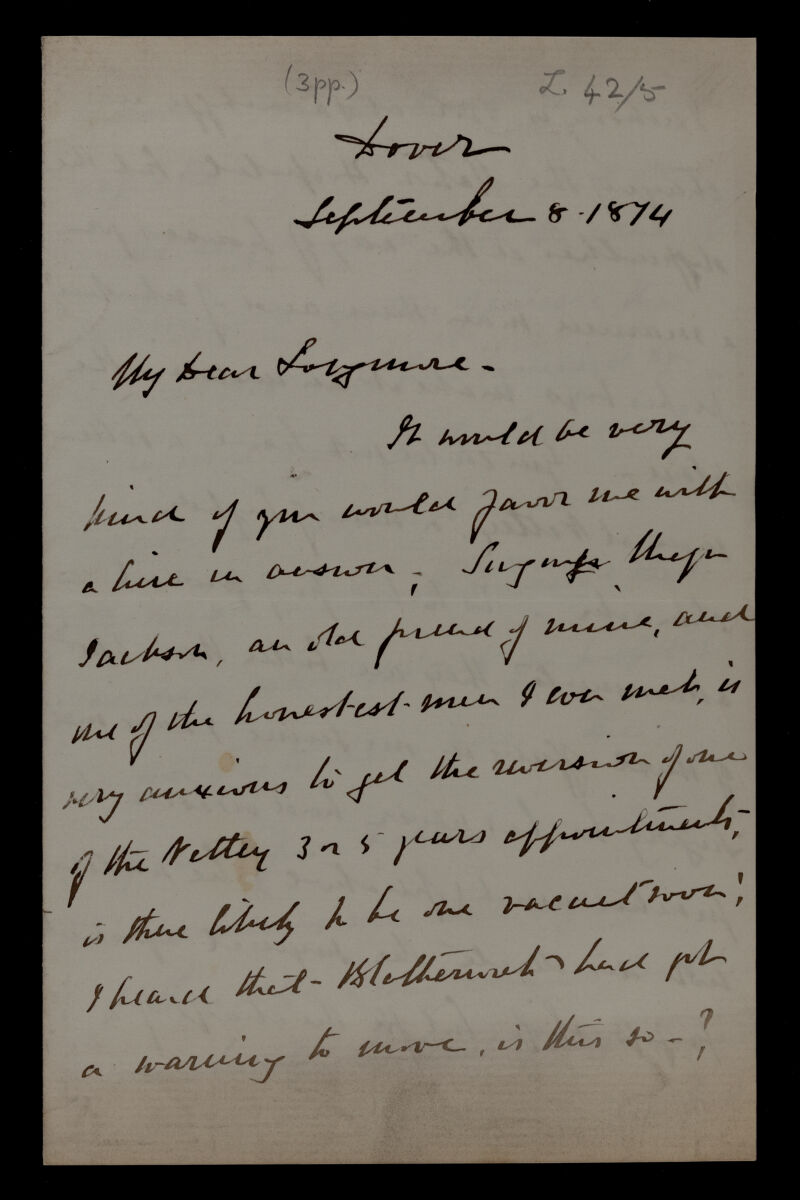 (3pp.) L. 42/5
Dover
September 8. 1874
My Dear Longmore -
It would be very
kind if you would favor me with
a line in answer; Surgeon Major
Jackson, an old friend of mine, and
one of the honestest men I ever met, is
very anxious to get the reversion of one
of the Netley 3 or 5 years appointments,
is there likely to be one vacant soon;
I heard that had got
a warning to move, is this so - ?